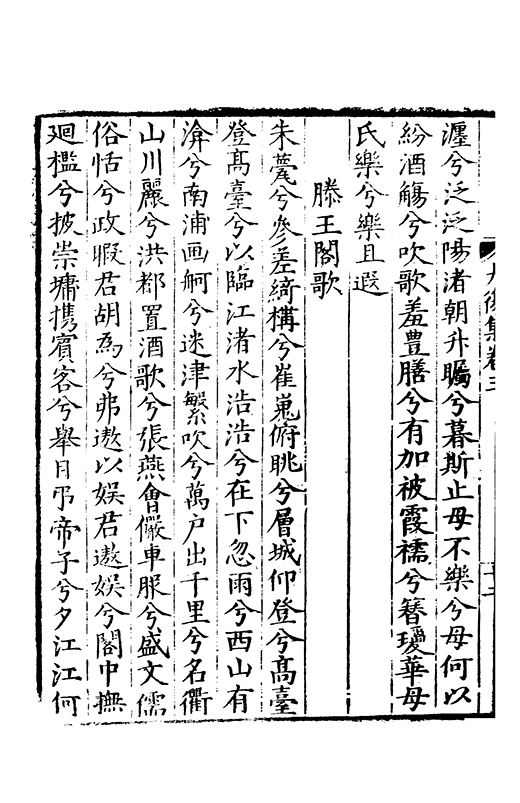 瀍兮泛泛陽渚朝升矚兮暮斯止母不樂兮母何以
紛酒觴兮吹歌羞豊膳兮有加被霞襦兮簪璦華母
氏樂兮樂且遐
滕王閣歌
朱甍兮參差綺構兮崔嵬俯眺兮層城仰登兮高臺
登高臺兮以臨江渚水浩浩兮在下忽雨兮西山有
渰兮南浦画舸兮迷津繁吹兮萬户出千里兮名衢
山川麗兮洪都置酒歌兮張燕會儼車服兮盛文儒
俗恬兮政暇君胡為兮弗遨以娱君遨娱兮閣中撫
廻檻兮披崇墉携賓客兮舉目弔帝子兮夕江江何